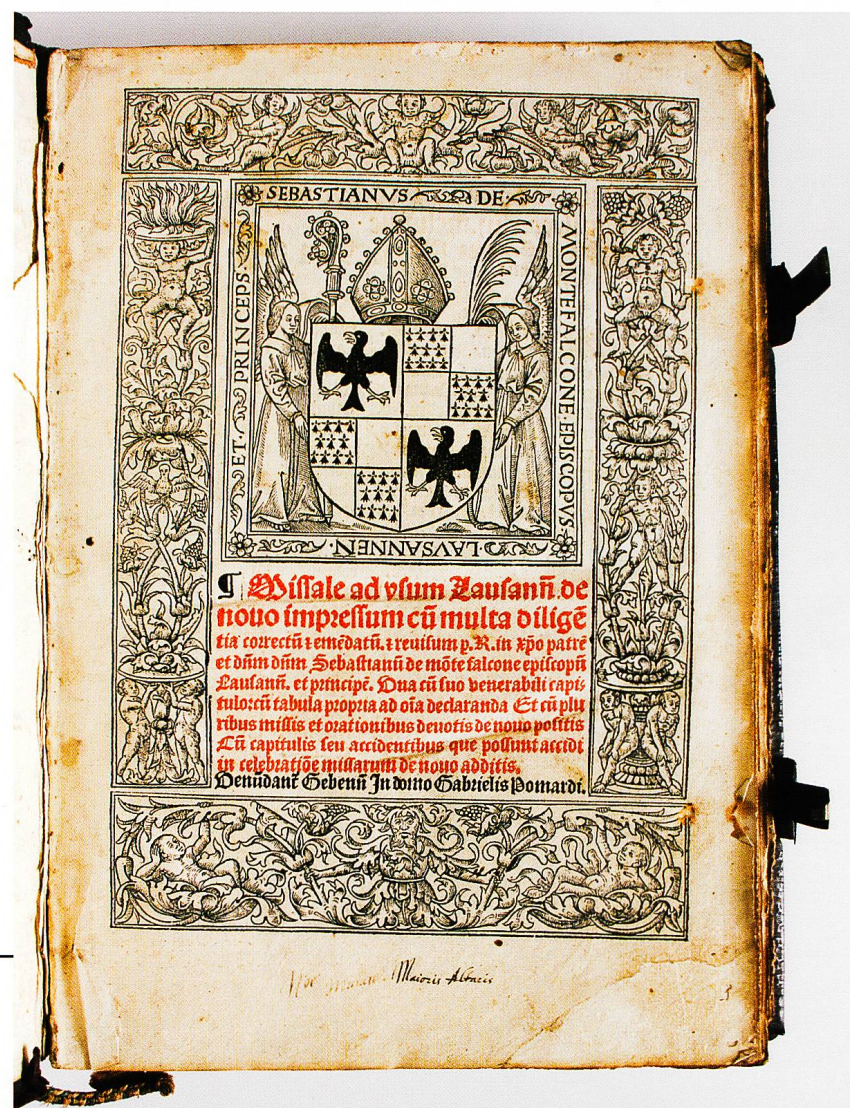 SEBASTIANVS DE
MONTEFALCONE·EPISCOPVS
·LAVSANNEN·
ET· PRINCEPS·
¶ Missale ad vsum Lausanñ. de
nouo impressum cũ multa diligẽ
tia correctũ ⁊ emẽdatũ. ⁊ reuisum p. R. in xp̃o patrẽ
et dñm dñm Sebastianũ de mõte falcone episcopũ
Lausanñ. et principẽ. Vna cũ suo venerabili capi⸗
tulorcũ tabula propria ad oĩa declaranda Et cũ plu
ribus missis et orationibus deuotis de nouo positis
Cũ capitulis seu accidentibus que possunt accidi
in celebratjõe missarum de nouo additis.
Venũdant̃ Gebenñ In domo Gabrielis Pomardi.
Maioris Altaris